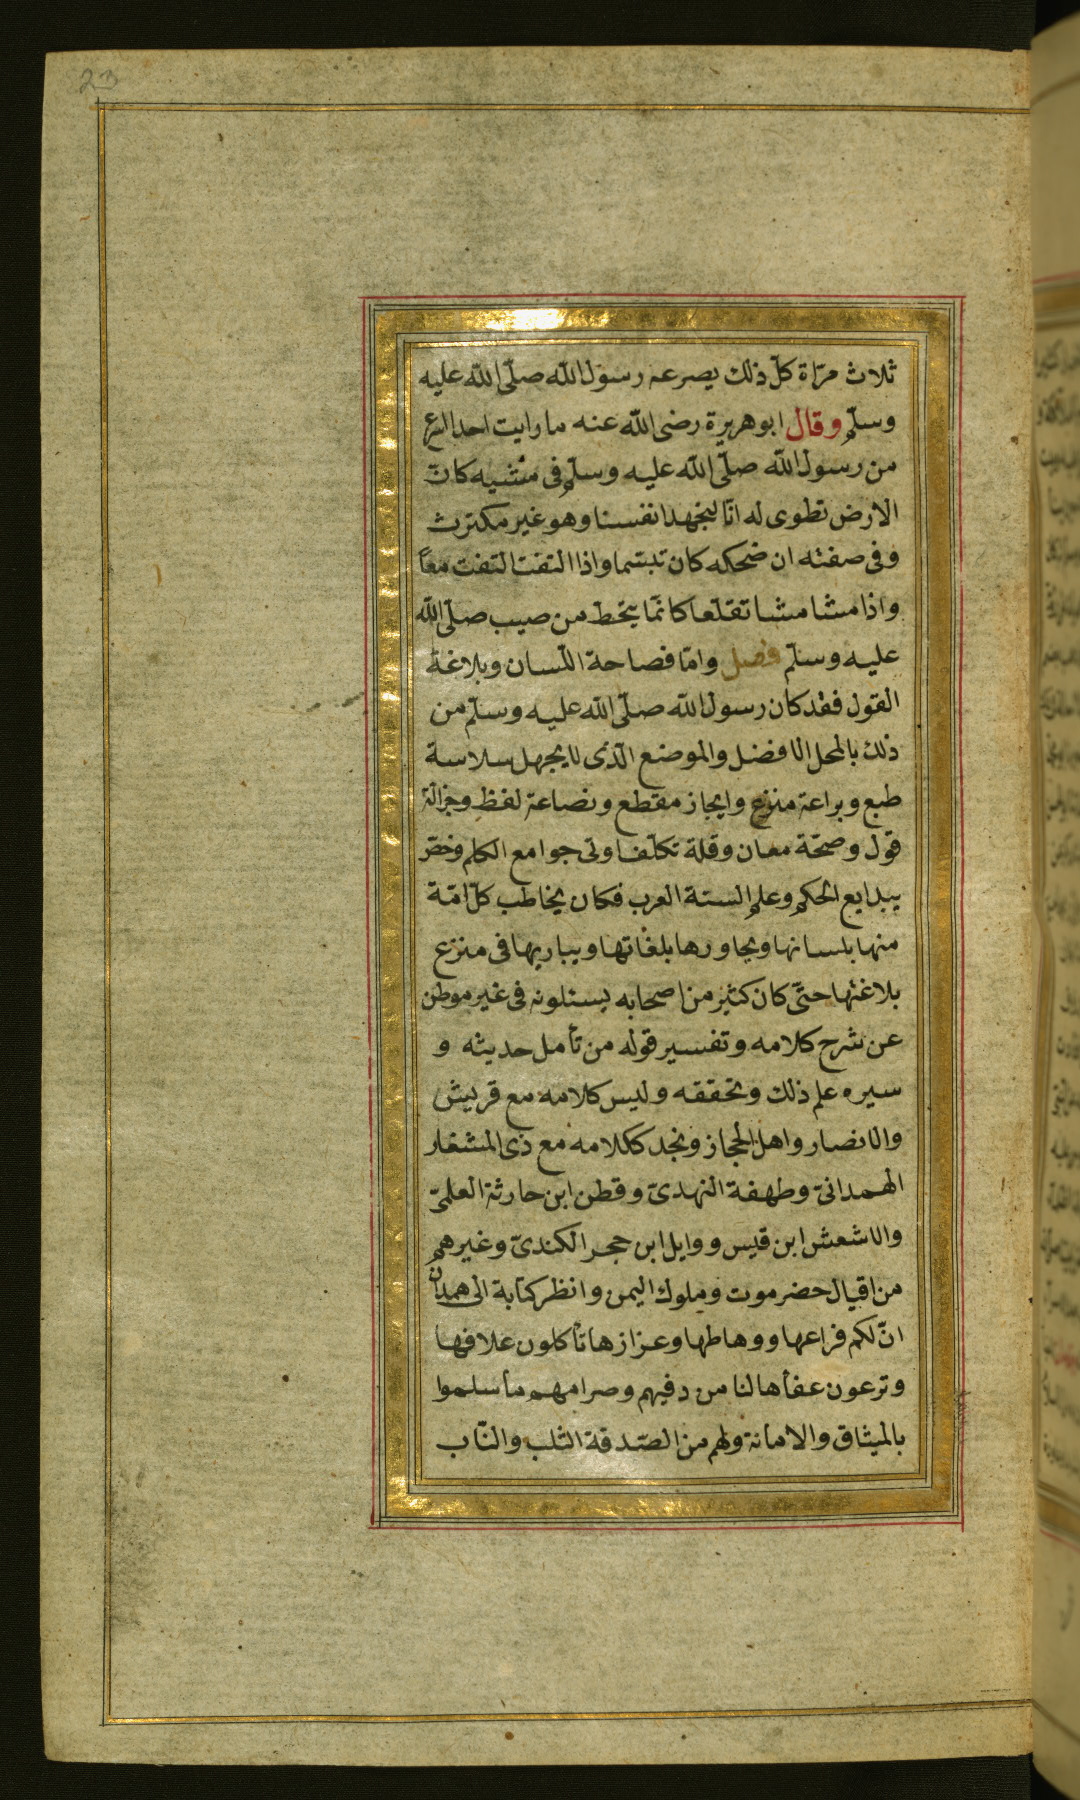 23
ثلاث مرّاة كلّ ذلك يصرعه رسول الله صلّى الله عليه
وسلّم وقال ابو هريرة رضى الله عنه ما رايت احدا اسرع
من رسول الله صلّى الله عليه وسلّم فى مشيه كانّ
الارض تطوى له انّا لنجهد انفسنا وهو غير مكترث
وفى صفته ان ضحكه كان تبسّما واذا التفت التفت معاً
واذا مشا مشا تقلّعا كانّما ينحطّ من صبب صلّى الله
عليه وسلّم فصل وامّا فصاحة اللّسان وبلاغة
القول فقد كان رسول الله صلّى الله عليه وسلّم من
ذلك بالمحل الافضل والموضع الّذى لا يجهل سلاسة
طبع وبراعة منزع وايجاز مقطع ونصاعة لفظ وجزالة
قول وصحّة معان وقلة تكلّف اوتى جوامع الكلم وخصّ
ببدايع الحكم وعلم السنة العرب فكان يخاطب كلّ امّة
منها بلسانها ويحاورها بلغاتها ويباريها فى منزع
بلاغتها حتّى كان كثير من اصحابه يسئلونه فى غير موطن
عن شرح كلامه وتفسير قوله من تأمل حديثه و
سيره علم ذلك وتحققه وليس كلامه مع قريش
والانصار واهل الحجاز ونجد ككلامه مع ذى المشغار
الهمدانىّ وطهفة النهدىّ وقطن ابن حارثة العلمىّ
والاشعش ابن قيس ووايل ابن حجر الكندىّ وغيرهم
من اقيال حضرموت وملوك اليمن وانظر كتابة الى همدان
انّ لكم فراعها ووهاطها وعزازها تأكلون علافها
وترعون عفأها لنا من دفيهم وصرامهم مأ سلموا
بالميثاق والامانة ولهم من الصّدقة الثلب والنّاب